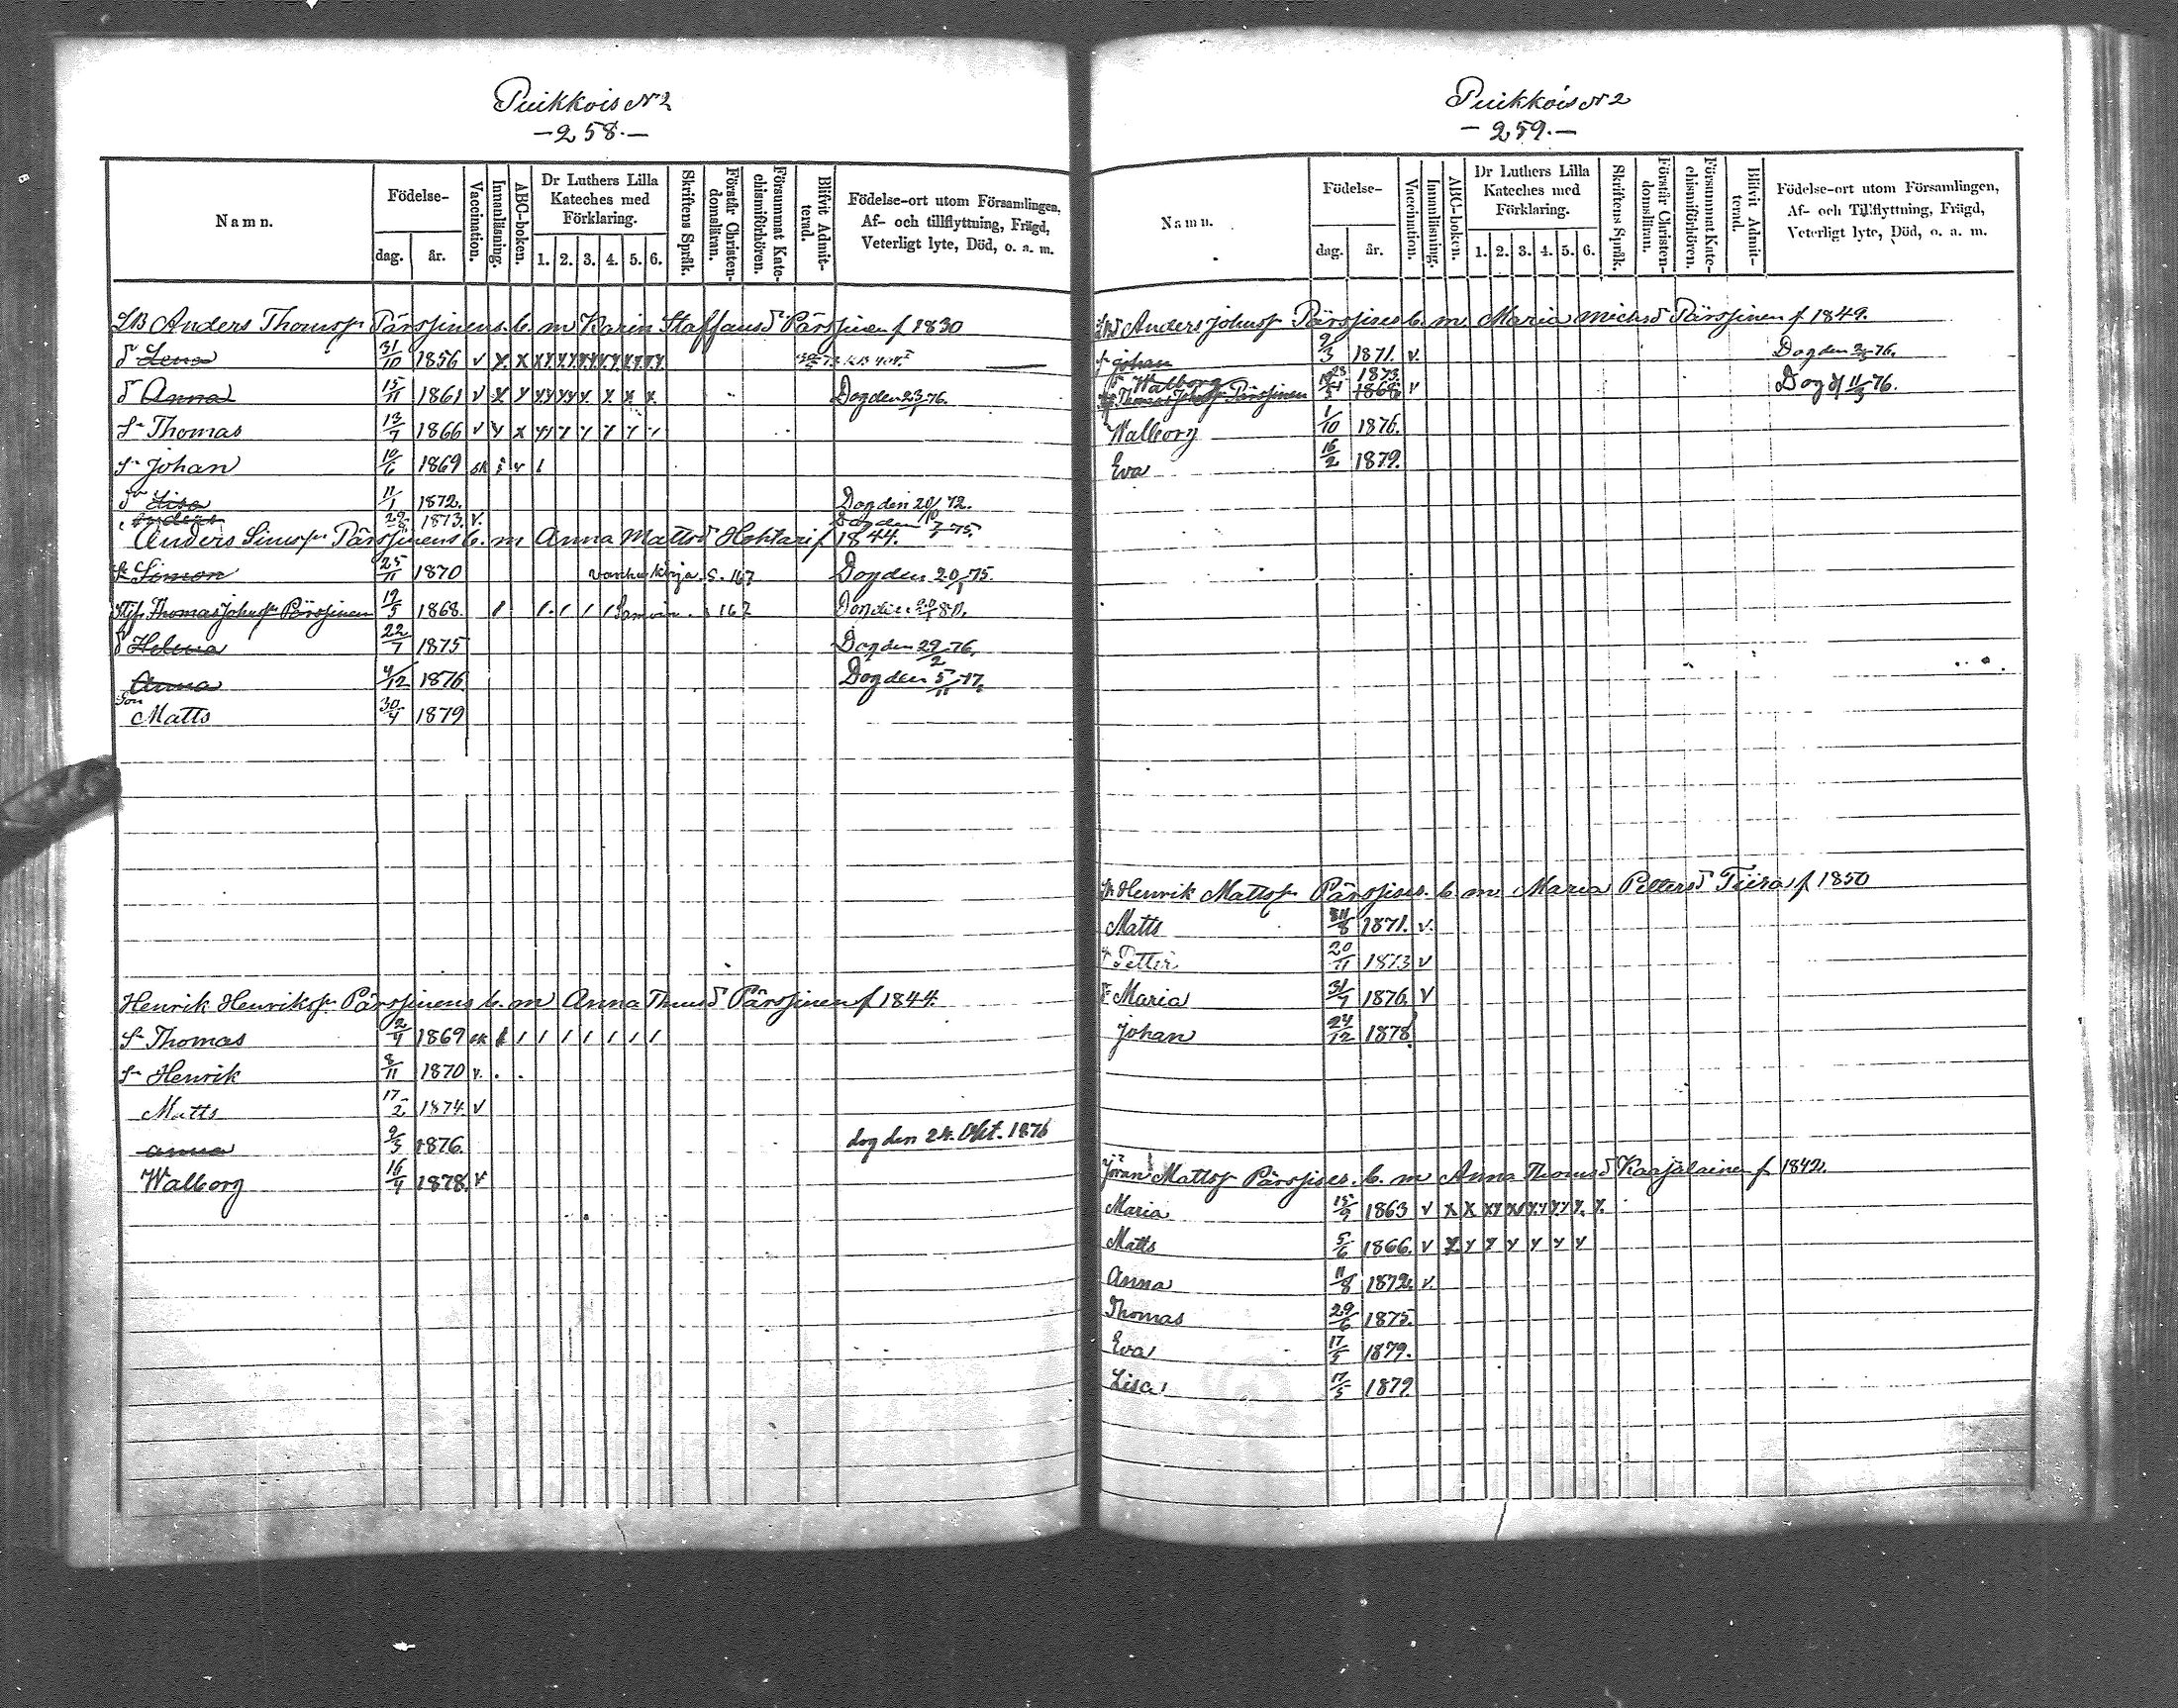 Puikkois № 2
— 258. —
Namn.
Födelse-
dag.
år.
Vaccination.
Innanläsning.
ABC-boken.
Dr Luthers Lilla
Kateches med
Förklaring.
1. 2. 3. 4. 5. 6.
Skriftens Språk.
Förstår Christen-
domsläran.
Försummat Kate-
chismiförhören.
Blifvit Admit-
terad.
Födelse-ort utom Församlingen,
Af- och tillflyttning, Frägd,
Veterligt lyte, Död, o. a. m.
Anders Thomasp. Pärssinens b. m Karin Staffansd Pärssinen f 1830
d Lena 31/10 1856 v x x
d Anna 15/11 1861 v x y Dog den 23 76.
Sn Thomas 13/7 1866 v y x
Sn Johan 10/6 1869
dr Lisa 11/1 1872. Dog den 20/1 72.
Anders 1873. v. Dog den
Anders Simsp. Pärssinens b. m Anna Mattsd Hohtari f 1844.
Simon 25/11 1870 vanha kirja s. 167 Dog den 75.
Thomas Johnsp Pärssinen 12/5 1868. 167 80.
d Helena 22/7 1875 Dog den 29/2 76.
Anna 4/12 1876 Dog den 5/11 77.
Son
Matts 30/4 1879
Henrik Henriksp. Pärssinens b. m Anna Thomsd Pärssinen f 1844
Sn Thomas 2/4 1869
Sn Henrik 8/11 1870 v.
Matts 17/2 1874 v
Anna 9/5 1876. dog den 24. Okt. 1876
Walborg 16/4 1878. v
Puikkois № 2
— 259. —
Namn.
Födelse-
dag.
år.
Vaccination.
Innanläsning.
ABC-boken.
Dr Luthers Lilla
Kateches med
Förklaring.
1. 2. 3. 4. 5. 6.
Skriftens Språk.
Förstår Christen-
domsläran.
Försummat Kate-
chismiförhören.
Blifvit Admit-
terad.
Födelse-ort utom Församlingen,
Af- och Tillflyttning, Frägd,
Veterligt lyte, Död, o. a. m.
Anders Johnsp Pärssises b. m. Maria Michsd Pärssinen f 1849.
Johan 9/3 1871. v. Dog den 76.
Walborg 1873. Dog d 11/3 76.
Thomas Johnsp Pärssinen 1868 v
Walborg 1/10 1876.
Eva 16/2 1879.
Henrik Mattsp Pärssises. b. m. Maria Pettersd Tiira f 1850
Matts 1871. v.
Petter 20/11 1873 v
Maria 31/7 1876. v
Johan 24/12 1878
Jöran Mattsp Pärssises. b. m Anna Thomsd Kaajalainen f 1842.
Maria 15/9 1863 v x x
Matts 5/6 1866. v
Anna 11/8 1872. v.
Thomas 29/6 1875.
Eva 17/5 1879.
Lisa 17/5 1879